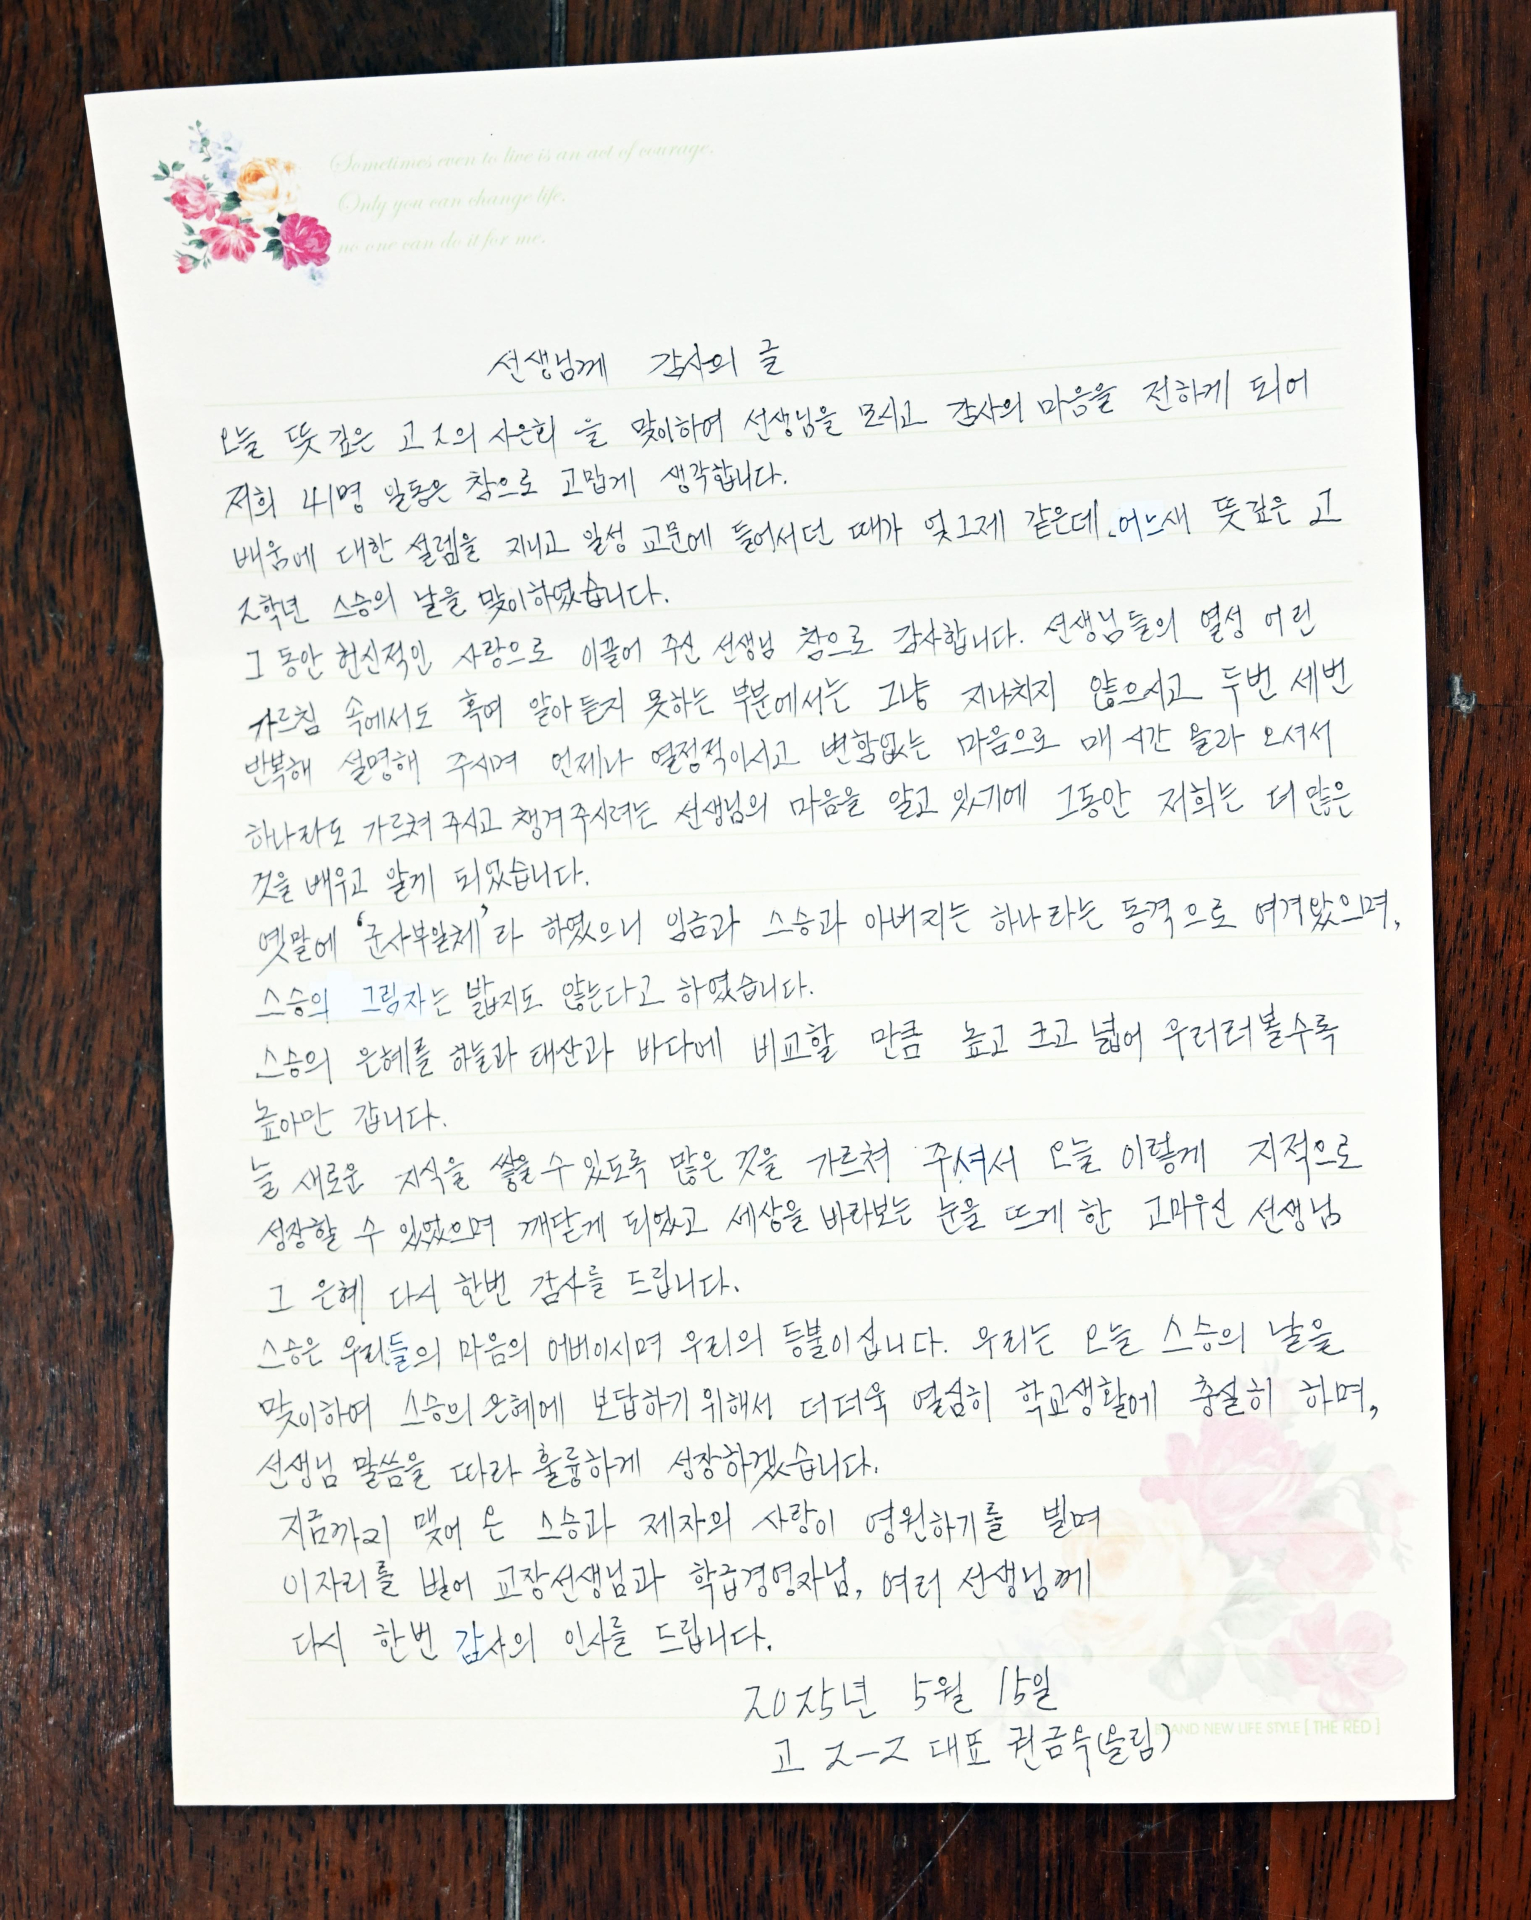 Sometimes even to live is an act of courage.
Only you can change life,
no one can do it for me.
선생님께 감사의 글
오늘 뜻 깊은 고2의 사은회 을 맞이하여 선생님을 모시고 감사의 마음을 전하게 되어
저희 41명 일동은 참으로 고맙게 생각합니다.
배움에 대한 설렘을 지니고 일성 교문에 들어서던 때가 엊그제 같은데, 어느새 뜻깊은 고
2학년 스승의 날을 맞이하였습니다.
그 동안 헌신적인 사랑으로 이끌어 주신 선생님 참으로 감사합니다. 선생님들의 열성 어린
가르침 속에서도 혹여 알아 듣지 못하는 부분에서는 그냥 지나치지 않으시고 두번 세번
반복해 설명해 주시며 언제나 열정적이시고 변함없는 마음으로 매 시간 올라 오셔서
하나라도 가르쳐 주시고 챙겨 주시려는 선생님의 마음을 알고 있기에 그동안 저희는 더 많은
것을 배우고 알게 되었습니다.
옛말에 '군사부일체'라 하였으니 임금과 스승과 아버지는 하나라는 동격으로 여겨왔으며,
스승의 그림자는 밟지도 않는다고 하였습니다.
스승의 은혜를 하늘과 태산과 바다에 비교할 만큼 높고 크고 넓어 우러러볼수록
높아만 갑니다.
늘 새로운 지식을 쌓을 수 있도록 많은 것을 가르쳐 주셔서 오늘 이렇게 지적으로
성장할 수 있었으며 깨닫게 되었고 세상을 바라보는 눈을 뜨게 한 고마우신 선생님
그 은혜 다시 한번 감사를 드립니다.
스승은 우리들의 마음의 어버이시며 우리의 등불이십니다. 우리는 오늘 스승의 날을
맞이하여 스승의 은혜에 보답하기 위해서 더더욱 열심히 학교생활에 충실히 하며,
선생님 말씀을 따라 훌륭하게 성장하겠습니다.
지금까지 맺어 온 스승과 제자의 사랑이 영원하기를 빌며
이자리를 빌어 교장선생님과 학급경영자님, 여러 선생님께
다시 한번 감사의 인사를 드립니다.
2025년 5월 15일
BRAND NEW LIFE STYLE [ THE RED ]
고 2-2 대표 권금옥(올림)